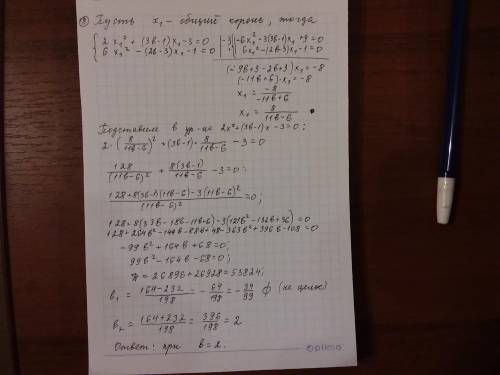 ③ Пусть x₁ - общий корень, тогда
{ 2x₁² + (3в-1)x₁ - 3 = 0 | -3 | -6x₁² - 3(3в-1)x₁ + 9 = 0
6x₁² - (2в-3)x₁ - 1 = 0 | 6x₁² - (2в-3)x₁ - 1 = 0
(-9в+3-2в+3)x₁ = -8
(-11в+6)·x₁ = -8
x₁ = -8/(-11в+6)
x₁ = 8/(11в-6)
Подставим в ур-ие 2x²+(3в-1)x-3=0;
2·(8/(11в-6))² + (3в-1)·8/(11в-6) - 3 = 0
128/(11в-6)² + 8(3в-1)/(11в-6) - 3 = 0;
(128+8(3в-1)(11в-6)-3(11в-6)²)/(11в-6)² = 0;
128+8(33в²-18в-11в+6)-3(121в²-132в+36)=0
128+264в²-144в-88в+48-363в²+396в-108=0
-99в²+164в+68=0;
99в²-164в-68=0;
D=26896+26928=53824;
в₁ = (164-232)/198 = -64/198 = -34/99 ∅ (не целое)
в₂ = (164+232)/198 = 396/198 = 2
Ответ: при в=2.
optima